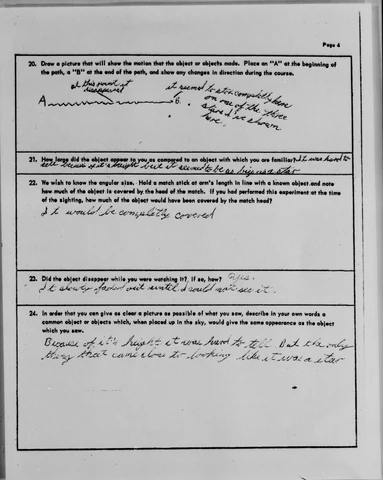 Page 4
20. Draw a picture that will show the motion that the object or objects made. Place an "A" at the beginning of
the path, a "B" at the end of the path, and show any changes in direction during the course.
at this point it
disappeared
it seemed to stop completly here
on one of the three
I've shown
here.
A
B.
21. How large did the object appear to you as compared to an object with which you are familiar? It was hard to
tell because of it's height but it seemed to be as big as a star
22. We wish to know the angular size. Hold a match stick at arm's length in line with a known object and note
how much of the object is covered by the head of the match. If you had performed this experiment at the
time of the sighting, how much of the object would have been covered by the match head?
It would be completly covered
23. Did the object disappear while you were watching it? If so, how? Yes.
It slowly faded out until I could not see it.
24. In order that you can give as clear a picture as possible of what you saw, describe in your own words a
common object or objects which, when placed up in the sky, would give the same appearance as the object
which you saw.
Because of it's height it was hard to tell. But the only
thing that came close to looking like it was a star